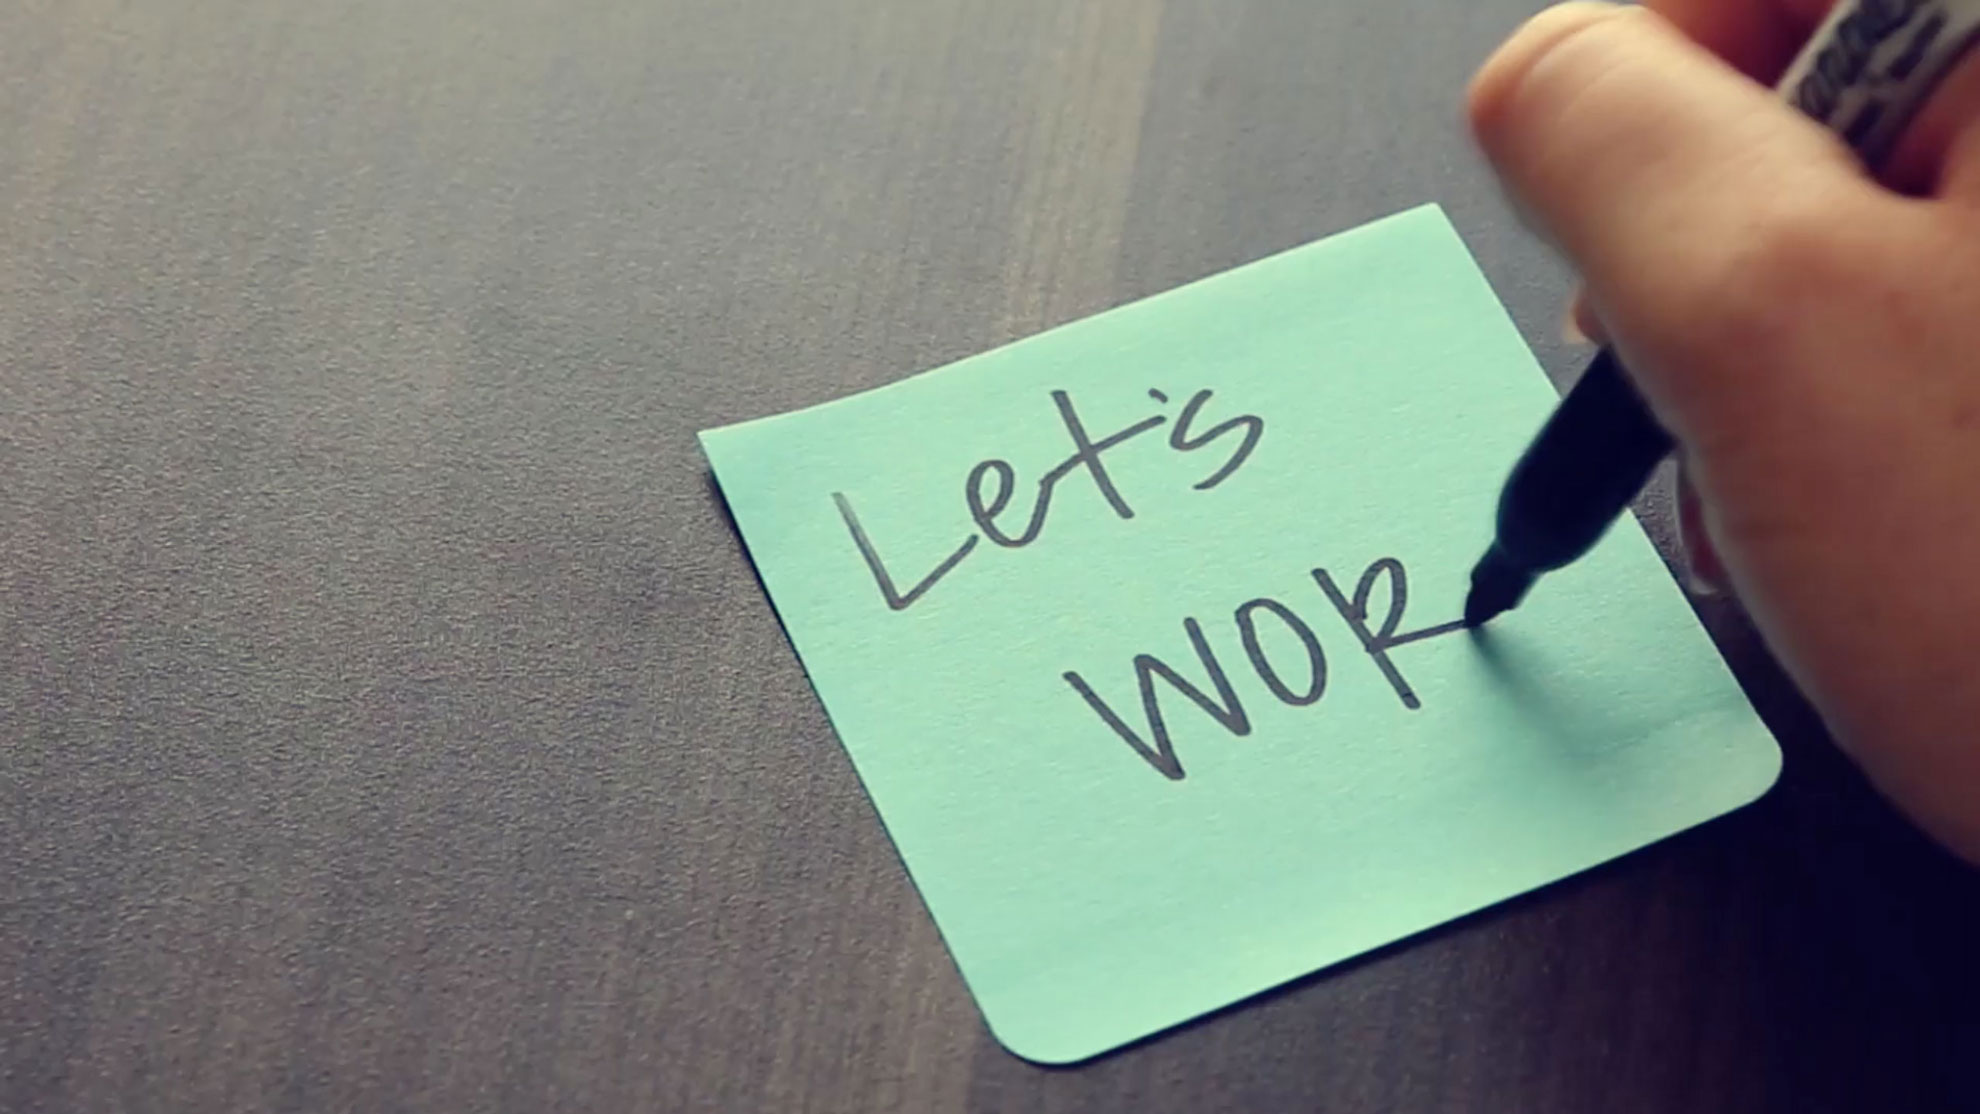 Let's
WOR